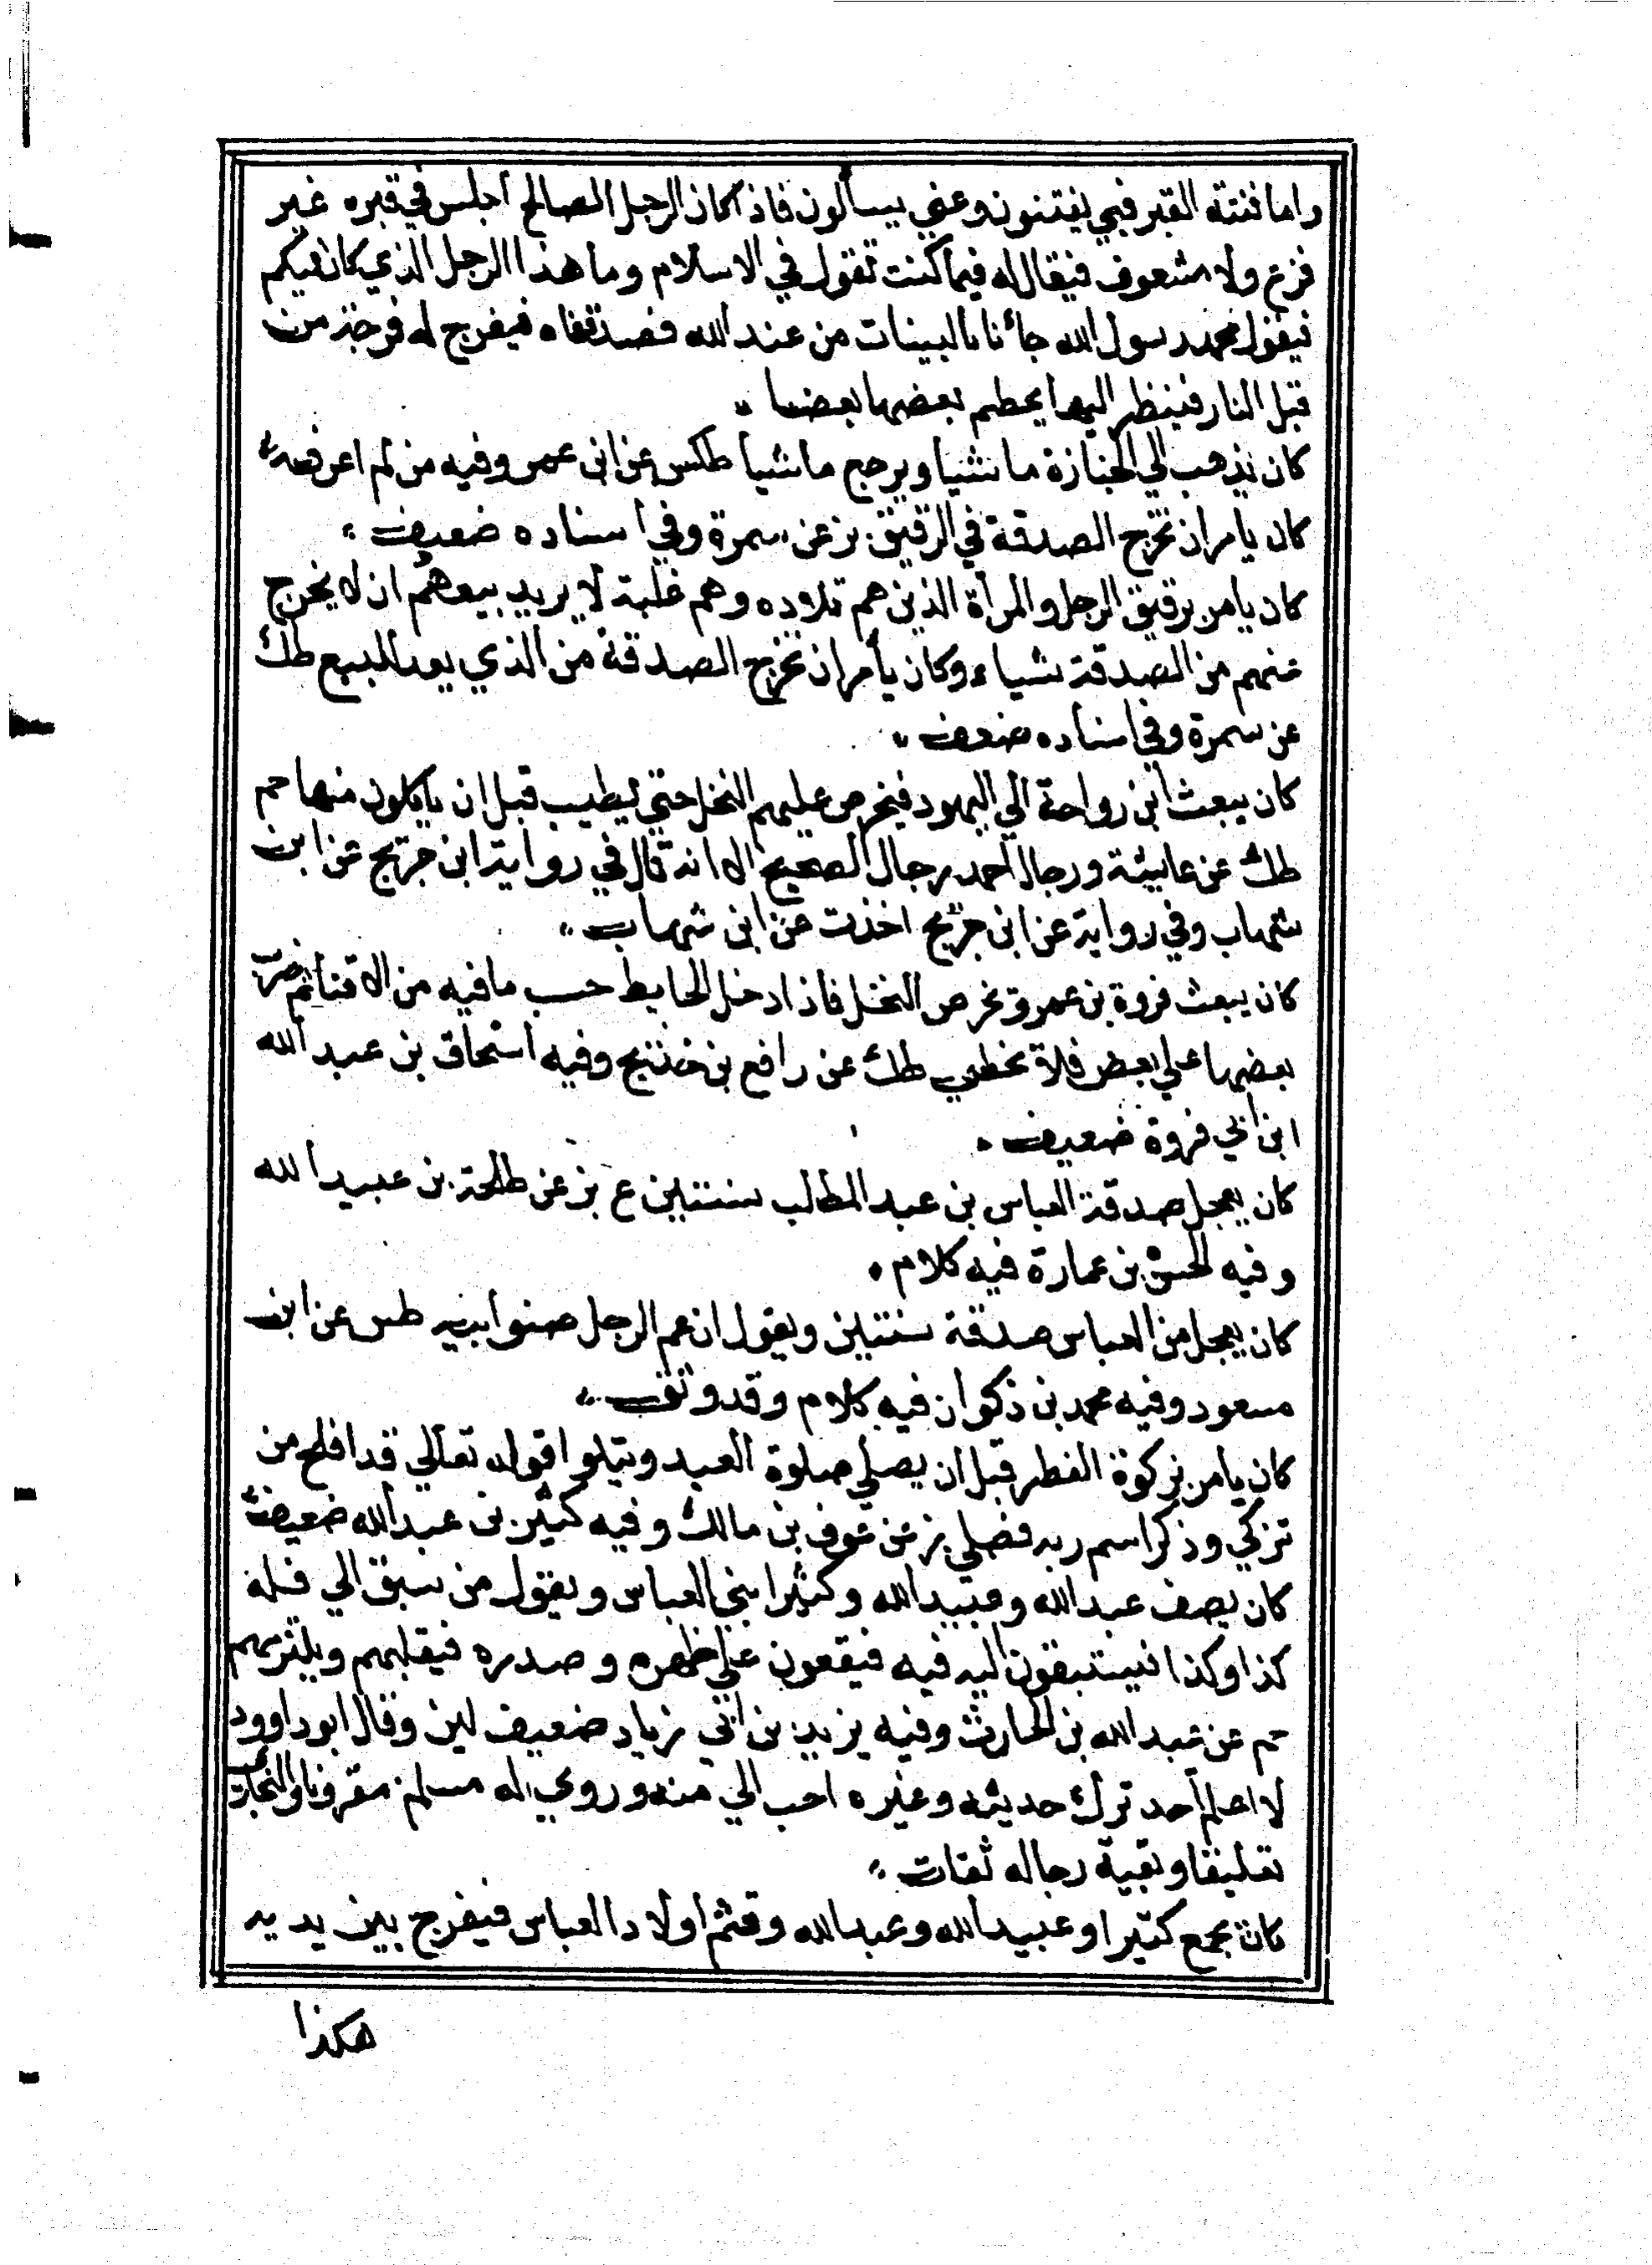 واما فتنة القبر فبي يفتنون وعني يسألون فاذا كان الرجل الصالح اجلس في قبره غير
فزع ولا مشعوف فيقال له فيما كنت تقول في الاسلام وما هذا الرجل الذي كان فيكم
فيقول محمد رسول الله جائنا بالبينات من عند الله فصدقناه فيفرج له فرجة من
قبل النار فينظر اليها يحطم بعضها بعضا
كان يذهب الي الجنازة ماشيا ويرجع ماشيا طكس عن ابن عمر وفيه من لم اعرفهم
كان يامر ان تخرج الصدقة في الرقيق بز عن سمرة وفي اسناده ضعيف
كان يامر برقيق الرجل والمرأة الذين هم تلاده وهم غلبة لا يريد بيعهم ان لا يخرج
عنهم من الصدقة شياء وكان يأمر ان تخرج الصدقة من الذي يعد للبيع طك
عن سمرة وفي اسناده ضعف
كان يبعث ابن رواحة الي اليهود فيخرص عليهم النخل حتي يطيب قبل ان ياكلون منها حم
طك عن عايشة ورجال احمد رجال الصحيح الا انه قال في رواية ابن جريج عن ابن
شهاب وفي رواية عن ابن جريج اخذت عن ابن شهاب
كان يبعث فروة بن عمرو تخرص النخل فاذا دخل الحايط حسب ما فيه من الاقنا ثم ضرب
بعضها علي بعض فلا تخطي طك عن رافع بن خديج وفيه اسحاق بن عبد الله
ابن ابي فروة ضعيف
كان يعجل صدقة العباس بن عبد المطالب سنتين ع بز عن طلحة بن عبيد الله
وفيه الحسن بن عمارة فيه كلام
كان يعجل من العباس صدقة سنتين ويقول ان عم الرجل صنوا بيه طس عن ابن
مسعود وفيه محمد بن ذكوان فيه كلام وقد وثق
كان يامر بزكوة الفطر قبل ان يصلي صلوة العيد ويتلوا قوله تعالي قد افلح من
تزكي وذكر اسم ربه فصلي بز عن عوف بن مالك وفيه كثير بن عبد الله ضعيف
كان يصف عبد الله وعبيد الله وكثيرا بني العباس ويقول من سبق الي فله
كذا وكذا فيستبقون اليه فيه فيقعون علي ظهره وصدره فيقبلهم ويلتزمهم
حم عن عبد الله بن الحارث وفيه يزيد بن ابي زياد ضعيف لين وقال ابو داوود
لا اعلم احد ترك حديثه وغيره احب الي منه وروي له مسلم مقرونا والبخاري
تعليقا وبقية رجاله ثقات
كان يجمع كثيرا وعبيد الله وعبد الله وقثم اولاد العباس فيفرج بين يديه
هكذا